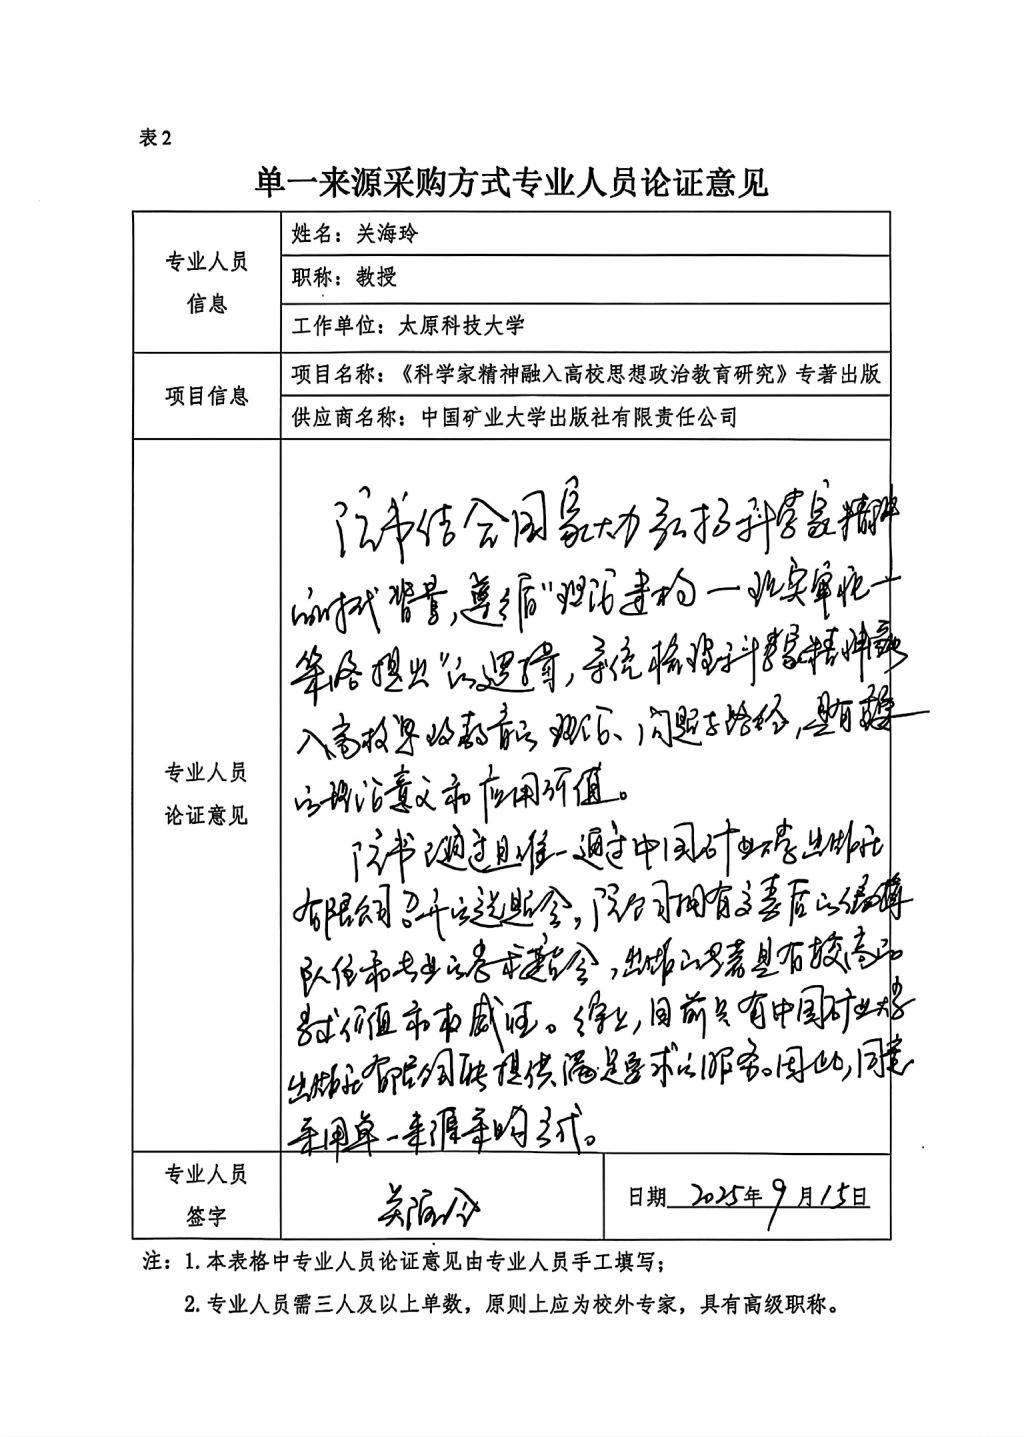 表2
单一来源采购方式专业人员论证意见
专业人员
信息
姓名：关海玲
职称：教授
工作单位：太原科技大学
项目信息
项目名称：《科学家精神融入高校思想政治教育研究》专著出版
供应商名称：中国矿业大学出版社有限责任公司
专业人员
论证意见
该书结合国家大力弘扬科学家精神
的时代背景，遵循“理论建构一现实审视一
策略提出”的逻辑，系统梳理科学家精神融
入高校思政教育的理论、问题与路径，具有重要
的理论意义和应用价值。
该书已通过且唯一通过中国矿业大学出版社
有限公司召开的选题会，该公司拥有完善的编辑
队伍和专业的学术委员会，出版的专著具有较高的
学术价值和权威性。综上，目前只有中国矿业大学
出版社有限公司能提供满足要求的服务。因此，同意
采用单一来源采购方式。
专业人员
签字
关海玲
日期 2025年9月15日
注：1.本表格中专业人员论证意见由专业人员手工填写；
2.专业人员需三人及以上单数，原则上应为校外专家，具有高级职称。